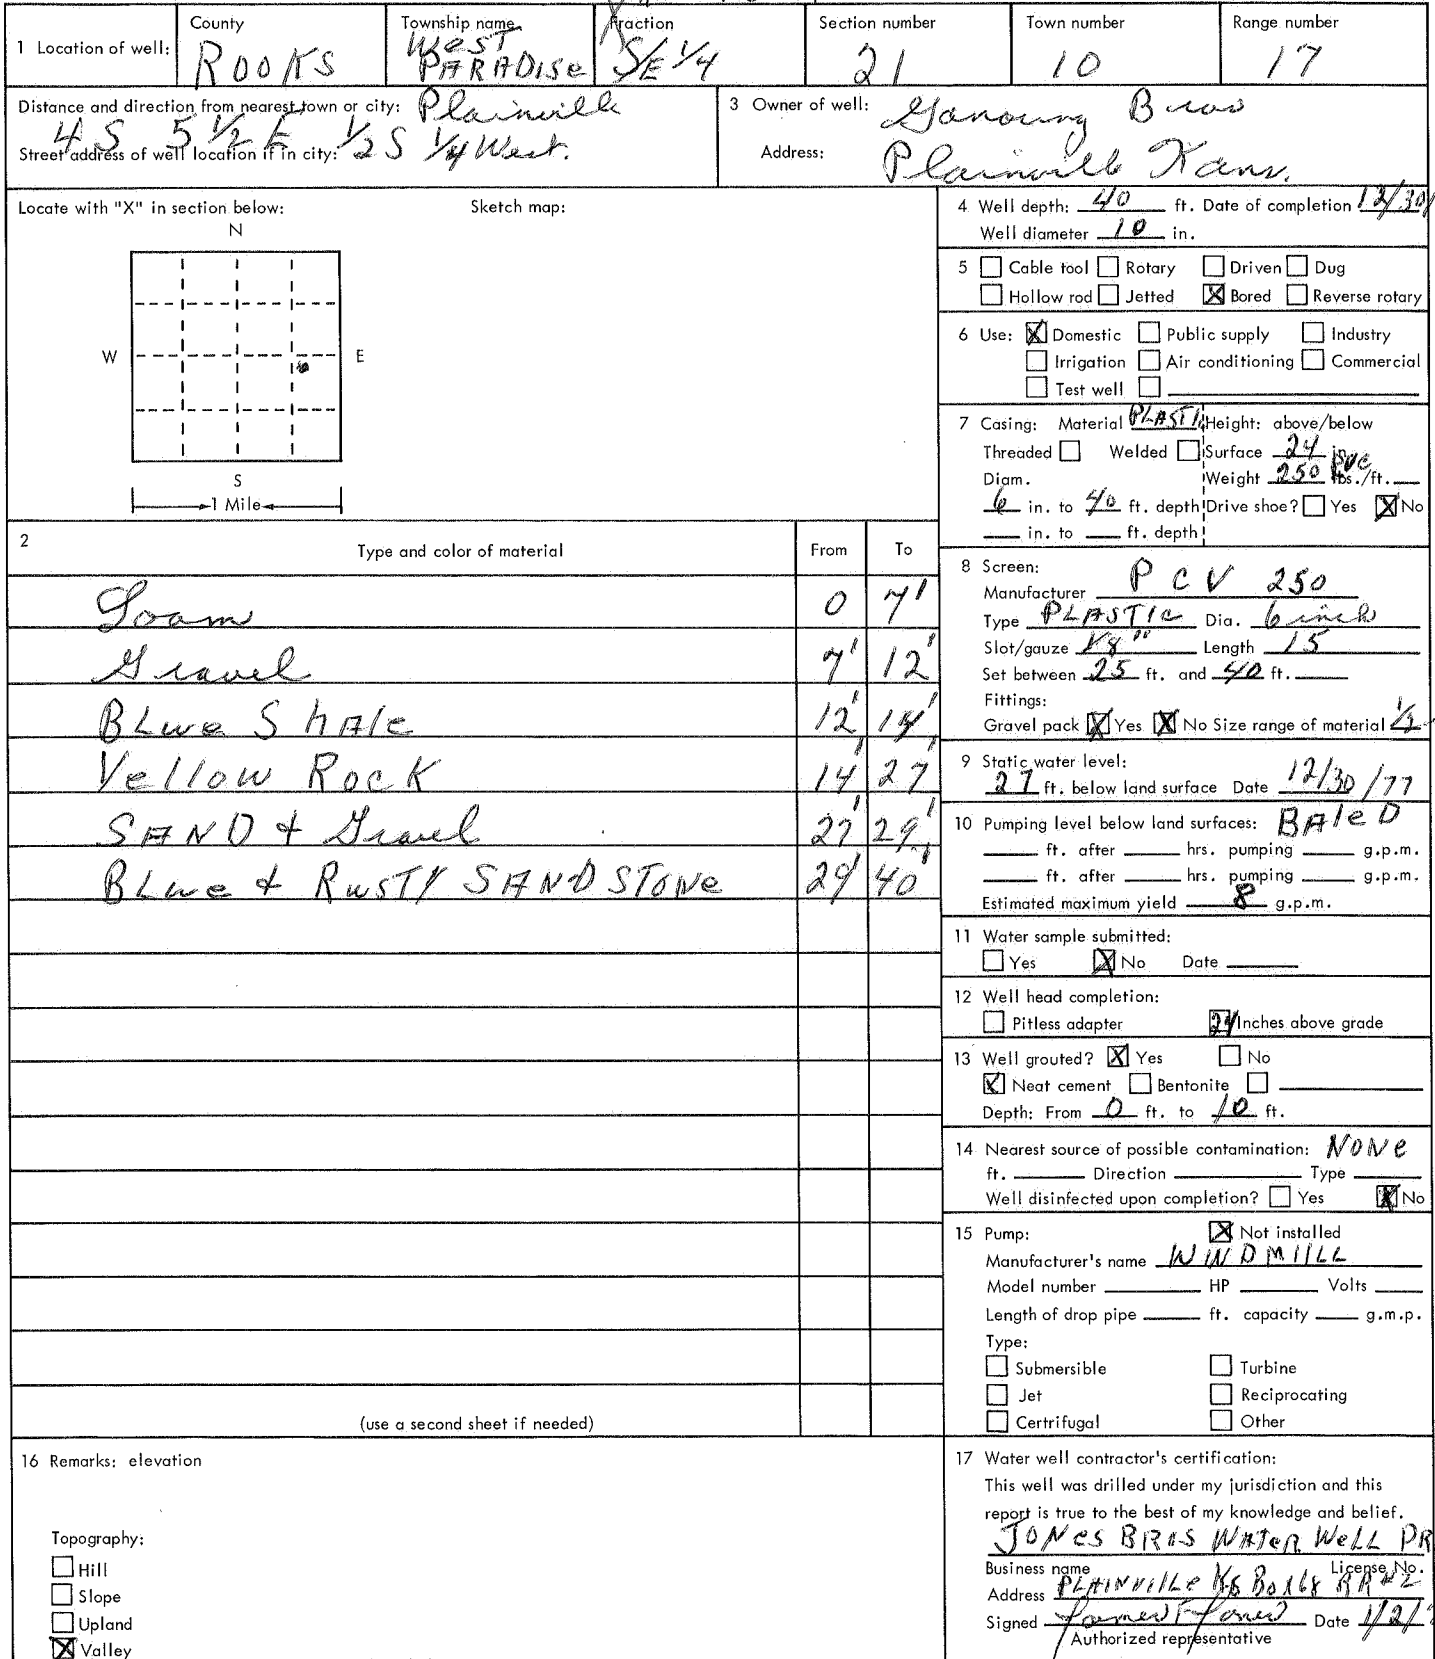 1 Location of well:
County
ROOKS
Township name
West
PARADISe
Fraction
S/E 1/4
Section number
21
Town number
10
Range number
17
Distance and direction from nearest town or city: Plainville
4 S 5 1/2 E 1/2 S 1/4 West.
Street address of well location if in city:
3 Owner of well: Bros
Address: Plainville Kans.
Locate with "X" in section below:
Sketch map:
N
W
E
S
1 Mile
2
Type and color of material
From
To
Loam 0 7'
Gravel 7' 12'
BLue SHAle 12' 14'
Yellow Rock 14' 27'
SAND & Gravel 27' 29'
BLue & RUSTY SANDSTONe 29' 40'
(use a second sheet if needed)
4 Well depth: 40 ft. Date of completion 12/30/
Well diameter 10 in.
5 ☐ Cable tool ☐ Rotary ☐ Driven ☐ Dug
☐ Hollow rod ☐ Jetted ☒ Bored ☐ Reverse rotary
6 Use: ☒ Domestic ☐ Public supply ☐ Industry
☐ Irrigation ☐ Air conditioning ☐ Commercial
☐ Test well ☐
7 Casing: Material PLASTIC Height: above/below
Threaded ☐ Welded ☐ Surface 24 in.
Diam. Weight 250 PVC lbs./ft.
6 in. to 40 ft. depth Drive shoe? ☐ Yes ☒ No
in. to ft. depth
8 Screen:
Manufacturer PCV 250
Type PLASTIC Dia. 6 inch
Slot/gauze 1/8" Length 15
Set between 25 ft. and 40 ft.
Fittings:
Gravel pack ☒ Yes ☒ No Size range of material 1/2
9 Static water level:
27 ft. below land surface Date 12/30/77
10 Pumping level below land surfaces: BAleD
ft. after hrs. pumping g.p.m.
ft. after hrs. pumping g.p.m.
Estimated maximum yield 8 g.p.m.
11 Water sample submitted:
☐ Yes ☒ No Date
12 Well head completion:
☐ Pitless adapter 24 Inches above grade
13 Well grouted? ☒ Yes ☐ No
☒ Neat cement ☐ Bentonite ☐
Depth: From 0 ft. to 10 ft.
14 Nearest source of possible contamination: NONe
ft. Direction Type
Well disinfected upon completion? ☐ Yes ☒ No
15 Pump: ☒ Not installed
Manufacturer's name WINDMILL
Model number HP Volts
Length of drop pipe ft. capacity g.m.p.
Type:
☐ Submersible ☐ Turbine
☐ Jet ☐ Reciprocating
☐ Certrifugal ☐ Other
16 Remarks: elevation
Topography:
☐ Hill
☐ Slope
☐ Upland
☒ Valley
17 Water well contractor's certification:
This well was drilled under my jurisdiction and this
report is true to the best of my knowledge and belief.
JONES BROS WATER WELL DR
Business name License No.
Address PLAINVILLE KS Box 68 RR#2
Signed Date 1/2/
Authorized representative